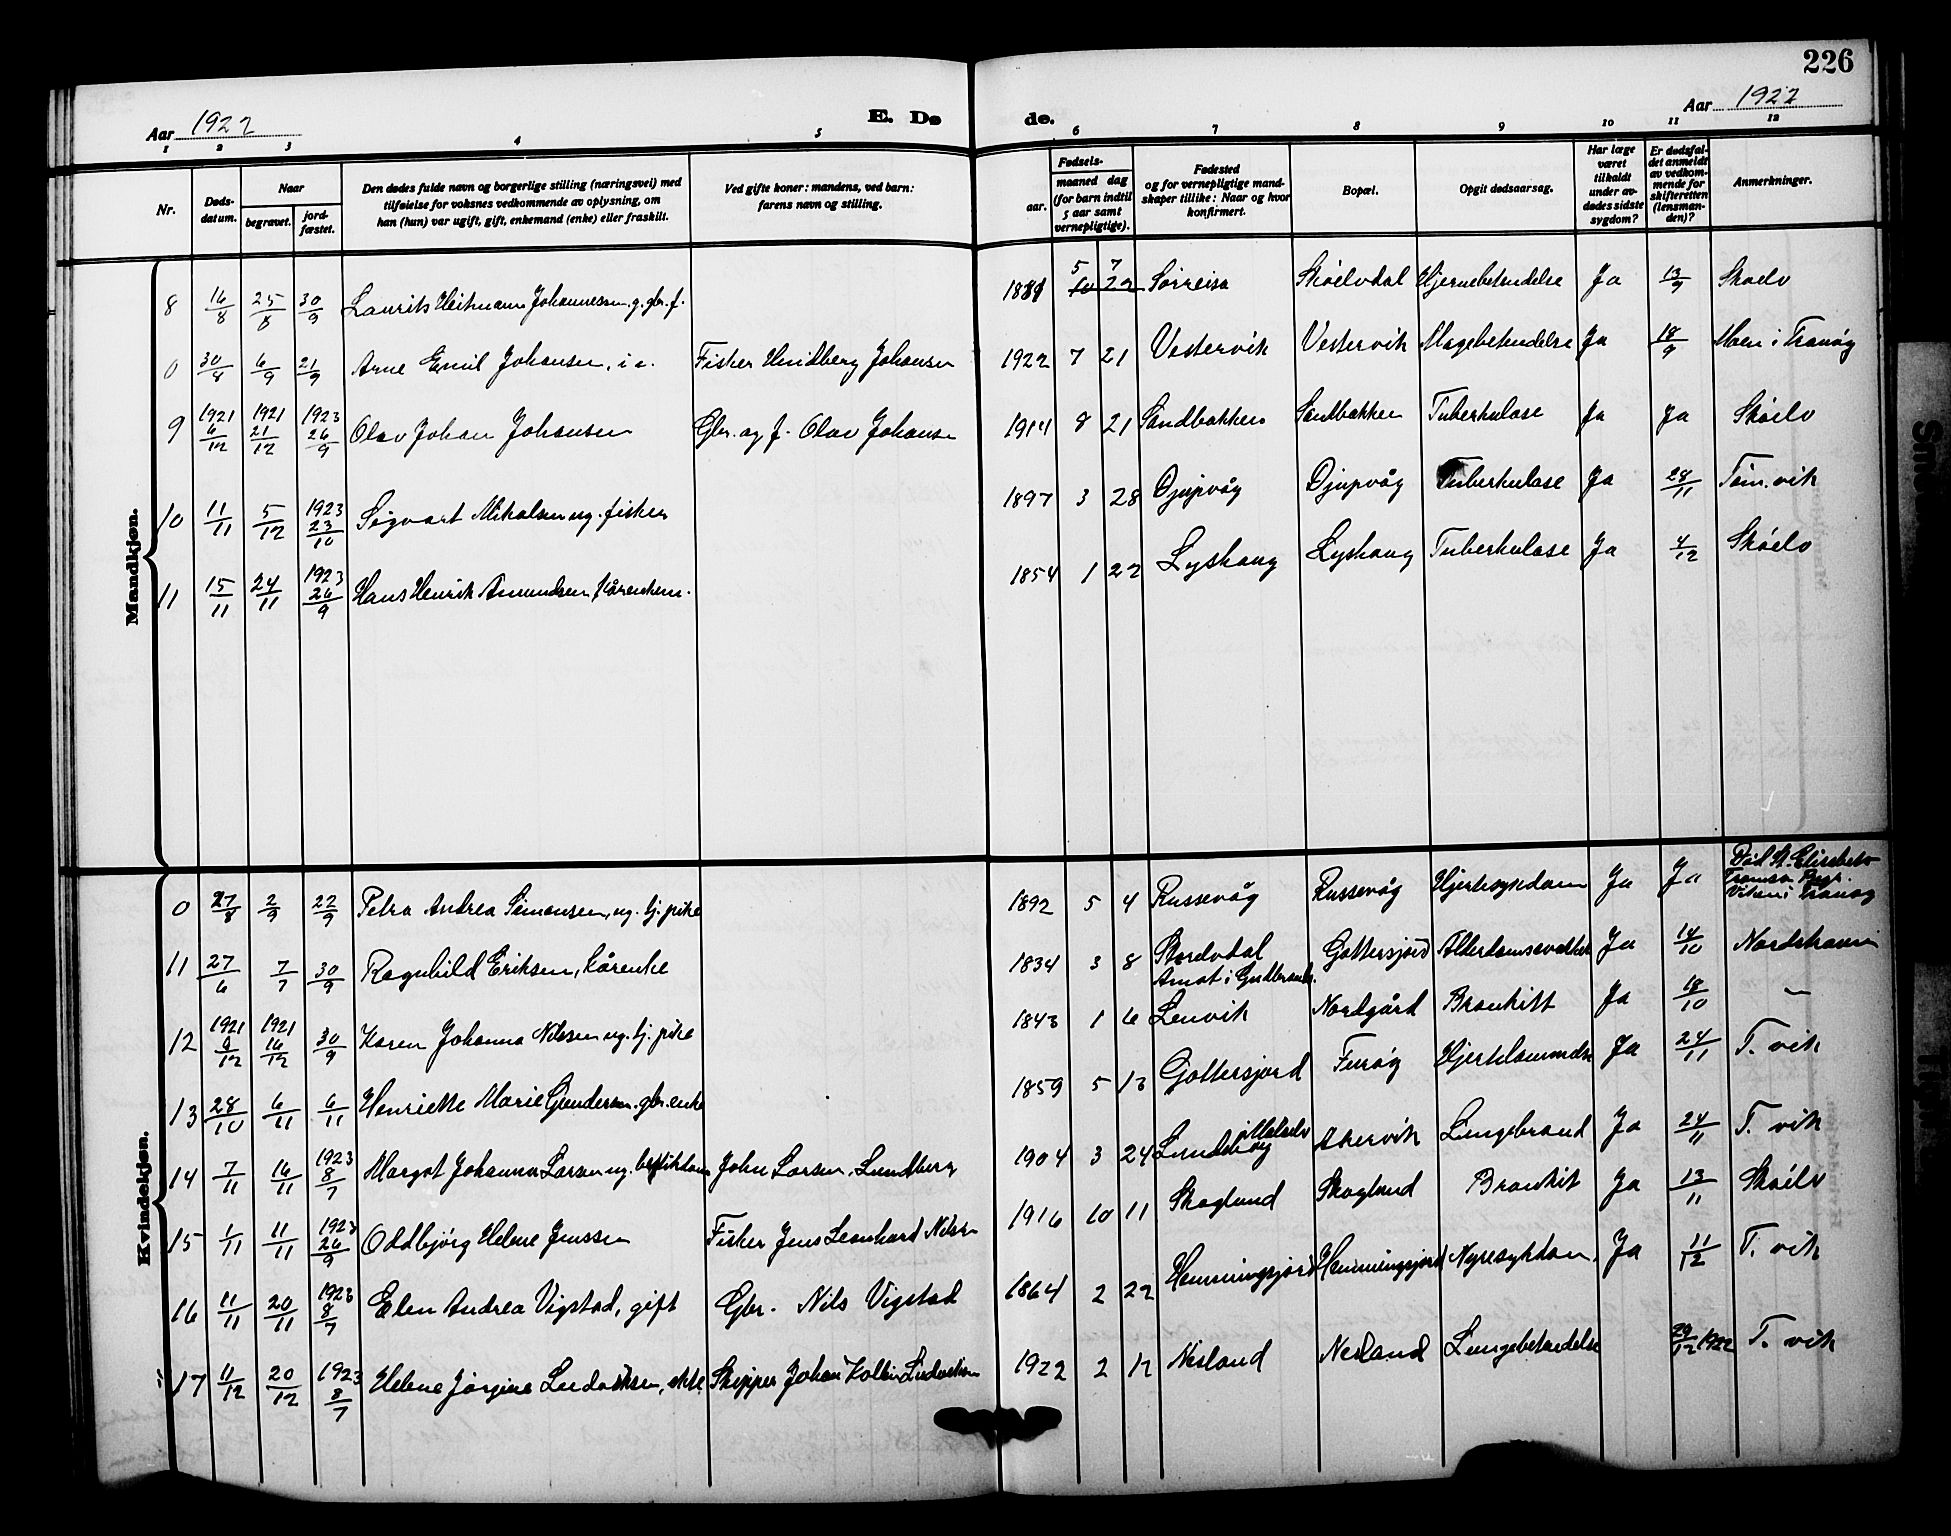 226
Aar 1922 E. Dø de. Aar 1922
1 2 3 4 5 6 7 8 9 10 11 12
Nr. Døds-datum. Naar begravet. jord-fæstet. Den dødes fulde navn og borgerlige stilling (næringsvei) med tilføielse for voksnes vedkommende av oplysning, om han (hun) var ugift, gift, enkemand (enke) eller fraskilt. Ved gifte koner: mandens, ved barn: farens navn og stilling. Fødsels- aar. maaned dag (for barn indtil 5 aar samt vernepligtige). Fødested og for vernepligtige mand-skaper tillike: Naar og hvor konfirmert. Bopæl. Opgit dødsaarsag. Har læge været tilkaldt under av-dødes sidste sygdom? Er dødsfal-det anmeldt av vedkom-mende for skifteretten (lensman-den)? Anmerkninger.
Mandkjøn.
8 16/8 25/8 30/9 Laurits Heitmann Johannesen, g. gbr. f. 1881 5 7 10 22 Sørreisa Skøelvdal Hjernebetendelse Ja 13/9 Skøelv
0 30/8 6/9 21/9 Arne Emil Johansen, Fisker Hindberg Johansen 1922 7 21 Vestervik Vestervik Magebetendelse Ja 18/9 Moen i Tranøy
9 1921 6/12 1921 21/12 1923 26/9 Olav Johan Johansen Gbr. og f. Olav Johansen 1914 8 21 Sandbakken Sandbakken Tuberkulose Ja Ja Skøelv
10 11/11 5/12 1923 23/10 Sigvart Mikalsen ug. fisker 1897 3 28 Djupvåg Djupvåg Tuberkulose Ja 28/11 Tom.vik
11 15/11 24/11 1923 26/9 Hans Henrik Amundsen, kårenkem. 1854 1 22 Lyshaug Lyshaug Tuberkulose Ja 4/12 Skøelv
Kvindekjøn.
0 27/8 2/9 22/9 Petra Andrea Simonsen, ug. tj. pike 1892 5 4 Russevåg Russevåg Hjertesykdom Ja Ja Død St. Elisabets Tromsø Begr. Viken i Tranøy
11 27/6 7/7 30/9 Ragnhild Eriksen, kårenke 1834 3 8 Storelvdal Amot i Gudbrands. Gottersjord Alderdomssvakhet Ja 14/10 Nordstraum
12 1921 9/12 1921 16/12 30/9 Karen Johanna Nilssen ug. tj. pike 1843 1 6 Lenvik Nordgård Bronkitt Ja 18/10 –
13 28/10 6/11 6/11 Henriette Marie Gundersen. gbr. enke 1859 5 13 Gottersjord Furøy Hjertelammelse Ja 24/11 T. vik
14 7/11 16/11 1923 8/7 Margot Johanna Larsen ug. John Larsen, Lundberg 1904 3 24 Lundberg i Målselv Akervik Lungebrand Ja 24/11 T. vik
15 1/11 11/11 1923 26/9 Oddbjørg Helene Jenssen Fisker Jens Leonhard Nilsen 1916 10 11 Skoglund Skoglund Bronkit Ja 13/11 Skøelv
16 11/11 20/11 1923 8/7 Elen Andrea Vigstad, gift Gbr. Nils Vigstad 1864 2 22 Hemmingsjord Hemmingsjord Nyresykdom Ja 11/12 T. vik
17 11/12 20/12 1923 8/7 Helene Jørgine Ludviksen, ekte Skipper Johan Kolbin Ludviksen 1922 2 12 Nesland Nesland Lungebetendelse 29/12 1922 T. vik